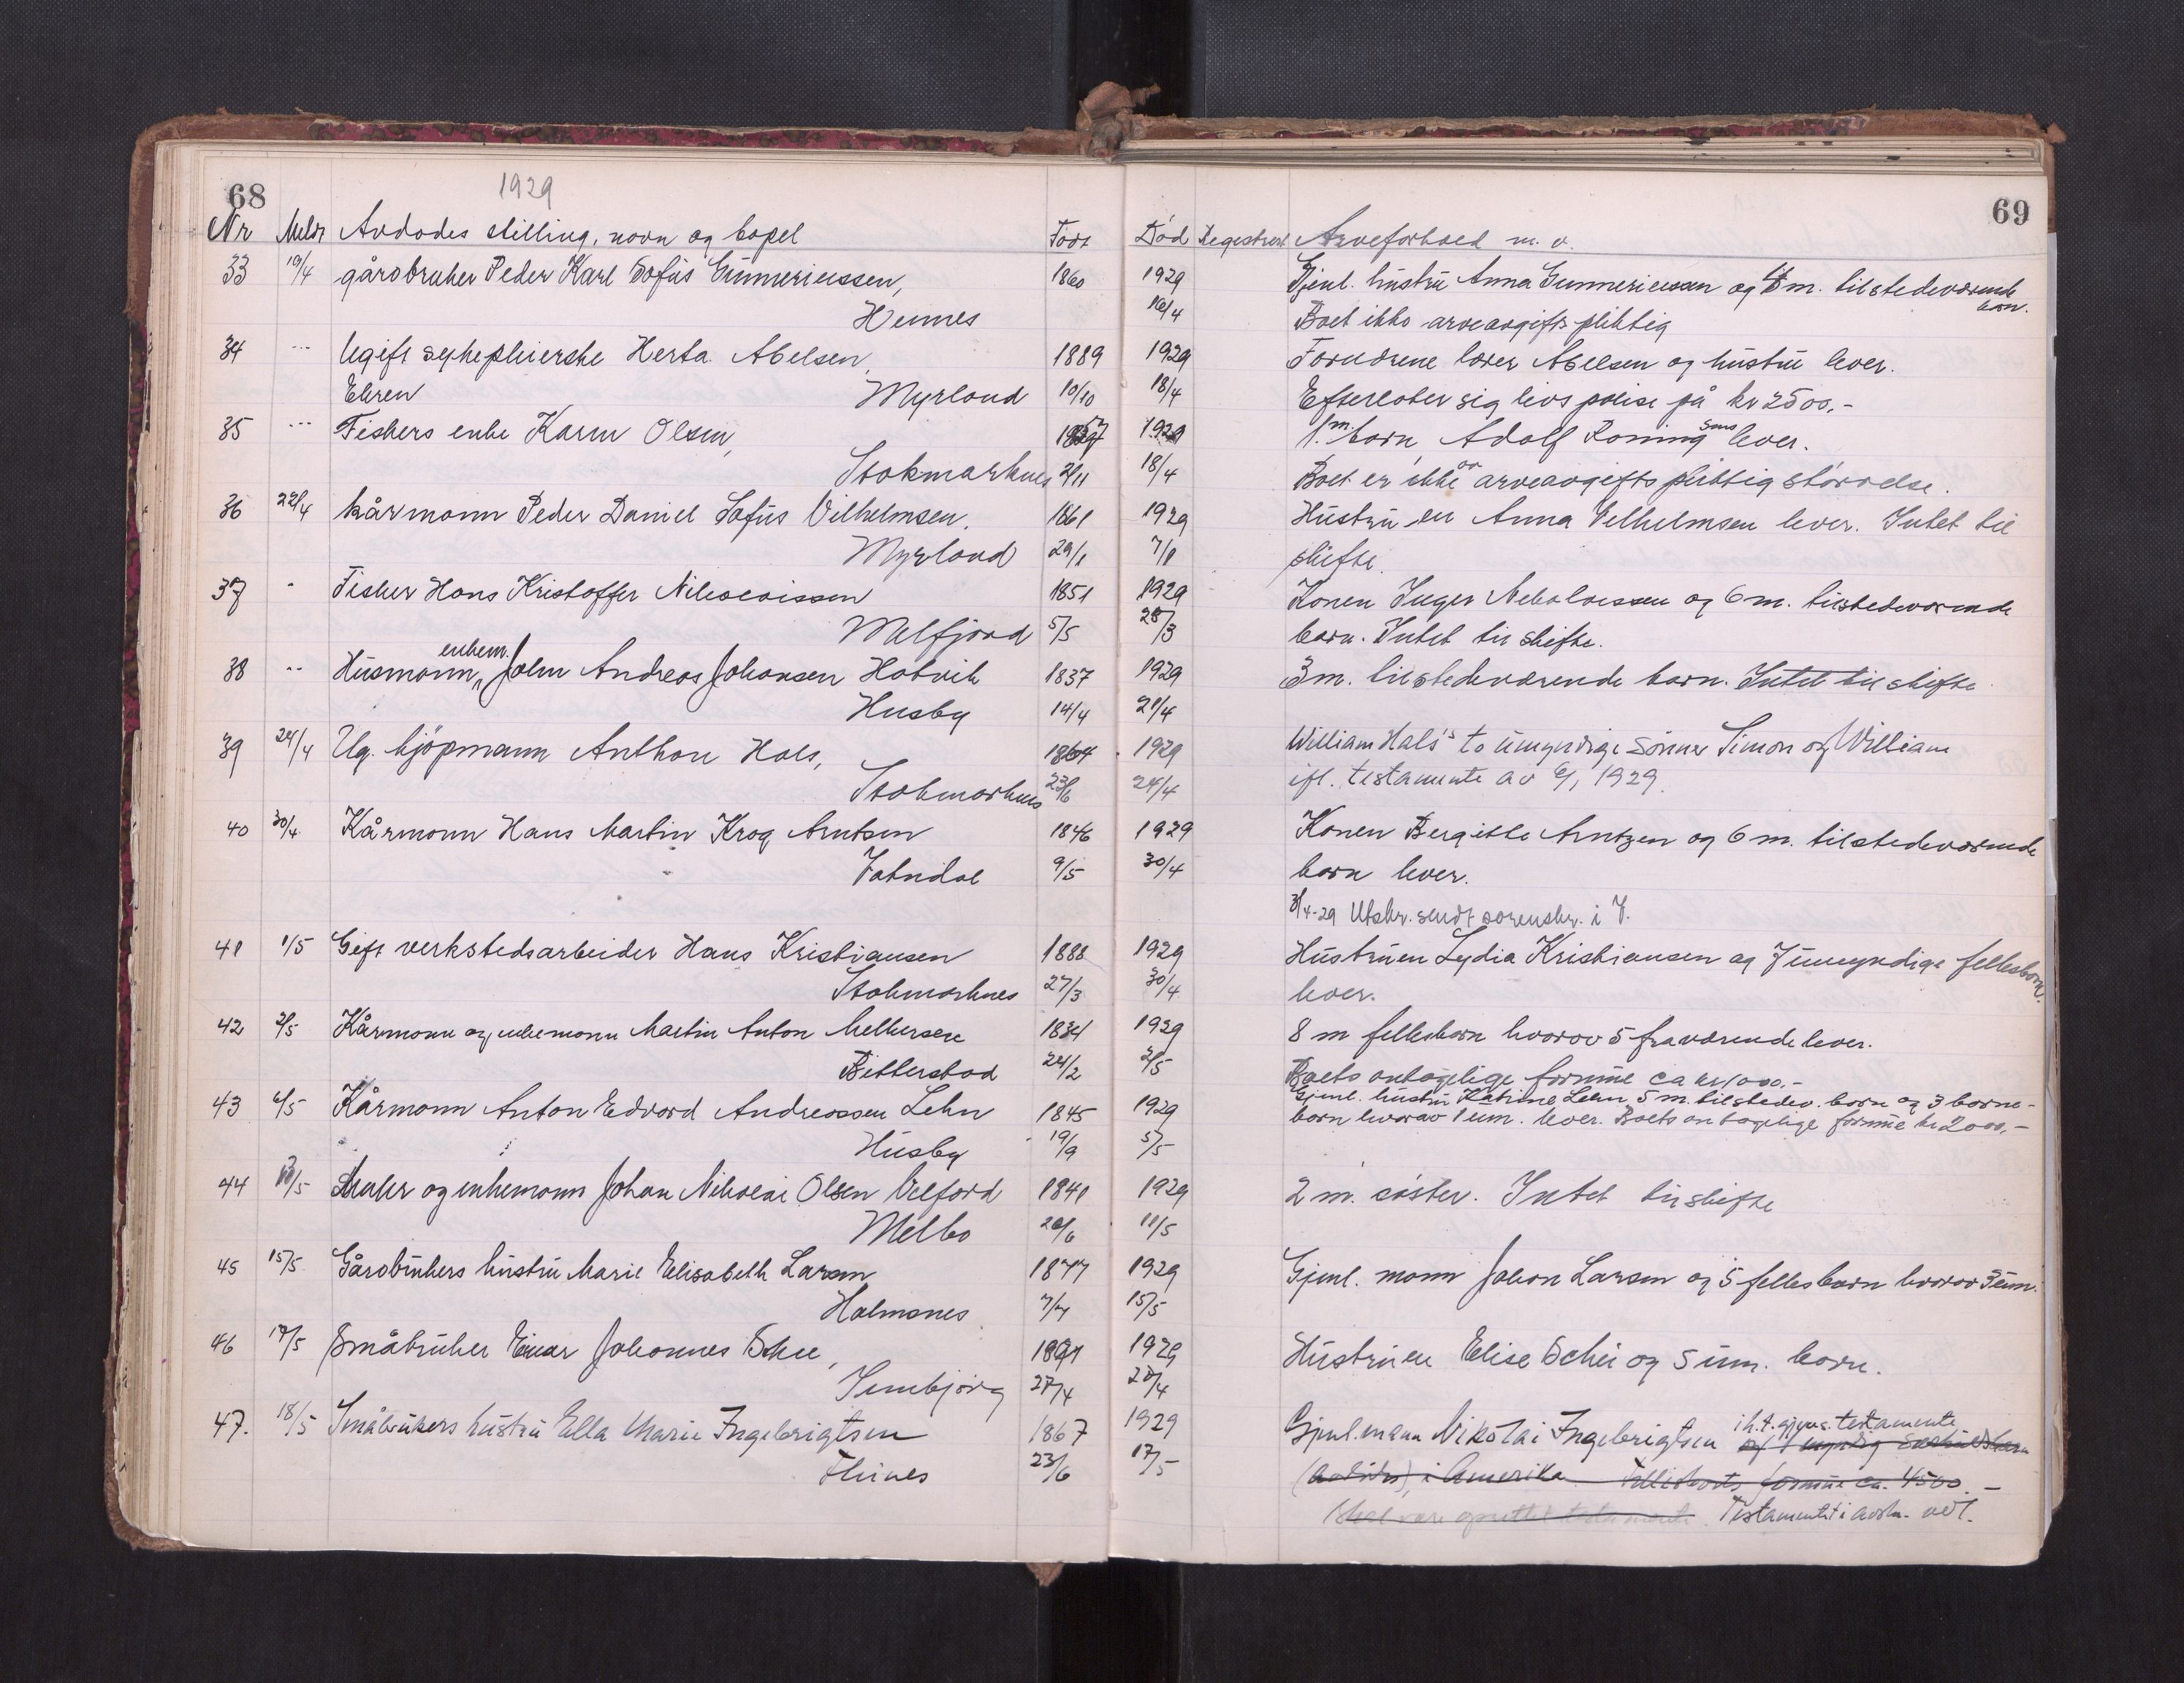 68 1929 69
Nr Meldt Avdødes stilling, navn og bopel Født Død Registrert Arveforhold m. v.
33 19/4 gårdbruker Peder Karl Sofus Gunneriussen, 1860 1929 Gjenl. hustru Anna Gunneriussen og m. tilstedeværende
Hennes 16/4 Boet ikke arveavgiftspliktig barn.
34 --- Ugift sykepleierske Herta Abelsen, 1889 1929 Foreldrene lærer Abelsen og hustru lever.
Myrland 10/10 18/4 Efterlater sig livspolise på kr 2500.-
35 --- Fiskers enke Karen Olsen, 1929 1. m barn Adolf Roning lever.
Stokmarknes 2/11 18/4 Boet er ikke av arveavgiftspliktig størrelse.
36 22/4 kårmann Peder Daniel Sofus Vilhelmsen. 1861 1929 Hustruen Anna Vilhelmsen lever. Intet til
Myrland 29/1 7/1 skifte.
37 - Fisker Hans Kristoffer Nikolaissen 1851 1929 Konen Inger Nikolaissen og 6 m. tilstedeværende
Melfjord 5/5 28/3 barn. Intet til skifte.
38 -- Husmann, enkem. John Andreas Johansen Hatvik 1837 1929 3 m. tilstedeværende barn. Intet til skifte
Husby 14/4 21/4
39 24/4 Ug. kjøpmann Anthon Hals, 1864 1929 William Hals's to umyndige sønner Simon og William
Stokmarknes 23/6 24/4 ifl. testamente av 6/1 1929.
40 30/4 Kårmann Hans Martin Krog Arntsen 1846 1929 Konen Bergitte Arntzen og 6 m. tilstedeværende
Vatndal 9/5 30/4 barn lever.
3/4-29 Utskr. sendt sorenskr. i V.
41 1/5 Gift verkstedsarbeider Hans Kristiansen 1888 1929 Hustruen Lydia Kristiansen og 7 umyndige fellesbarn
Stokmarknes 27/3 30/4 lever.
42 2/5 Kårmann og enkemann Martin Anton Melkersen 1834 1929 8 m fellesbarn hvorav 5 fraværende lever.
Bitterstad 24/2 2/5 Boets antagelige formue ca kr 1000.-
43 6/5 Kårmann Anton Edvard Andreassen Lehn 1845 1929 Gjenl. hustru Katrine Lehn 5 m. tilstedev. barn og 3 barne-
Husby 19/9 5/5 barn hvorav 1 um. lever. Boets antagelige formue kr 2000.-
44 /5 Maler og enkemann Johan Nikolai Olsen Velfjord 1841 1929 2 m. søster. Intet til skifte
Melbo 20/6 11/5
45 15/5 Gårdbrukers hustru Marie Elisabeth Larsen 1877 1929 Gjenl. mann Johan Larsen og 5 fellesbarn hvorav 3 um.
Holmsnes 7/7 15/5
46 17/5 Småbruker Einar Johannes Schei, 1929 Hustruen Elise Schei og 5 um. barn.
27/4 27/4
47. 18/5 Småbrukers hustru Ella Marie Ingebrigtsen 1867 1929 Gjenl. mann Nikolai Ingebrigtsen i h.t. gjens. testamente
Flines 23/6 17/5 i Amerika formue ca. 4500.-
Testamentet i avskr. vedl.